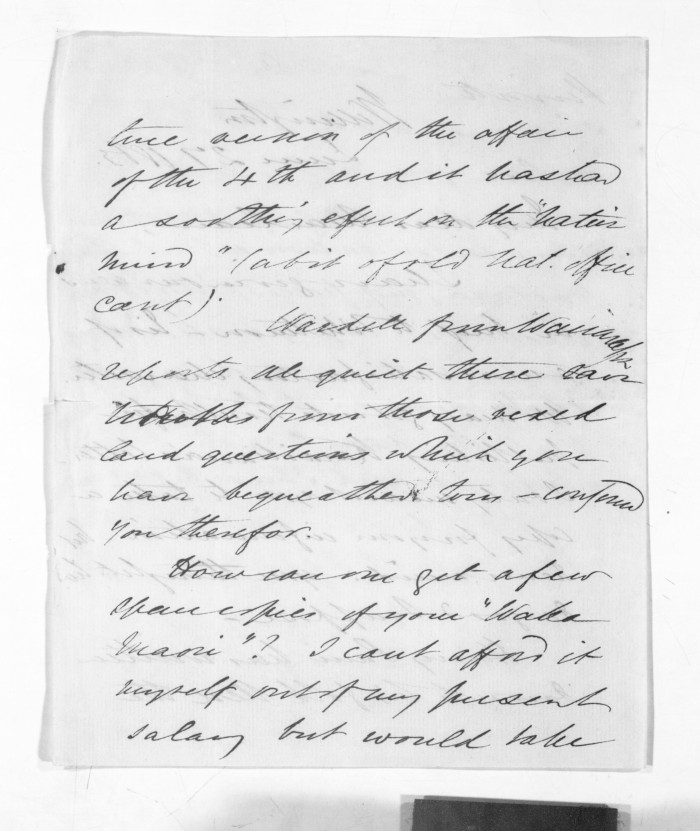 true version of the affair
of the 4th and it has had
a soothing effect on the "native
mind" (a bit of old Nat. office
cant).
Wardell from Wairarapa
reports all quiet there save
troubles from those vexed
land questions which you
have bequeathed to us - confound
you therefor.
How can one get a few
spare copies of your "Waka
Maori"? I cant afford it
myself out of my present
salary but would take